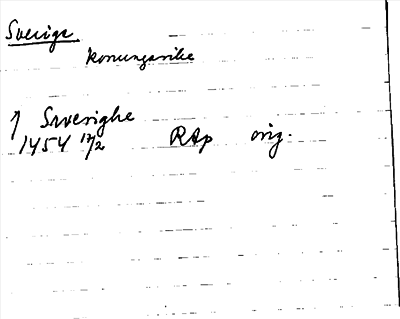 Sverige
konungarike
↑ Swerighe
1454 12/2 RAp orig.